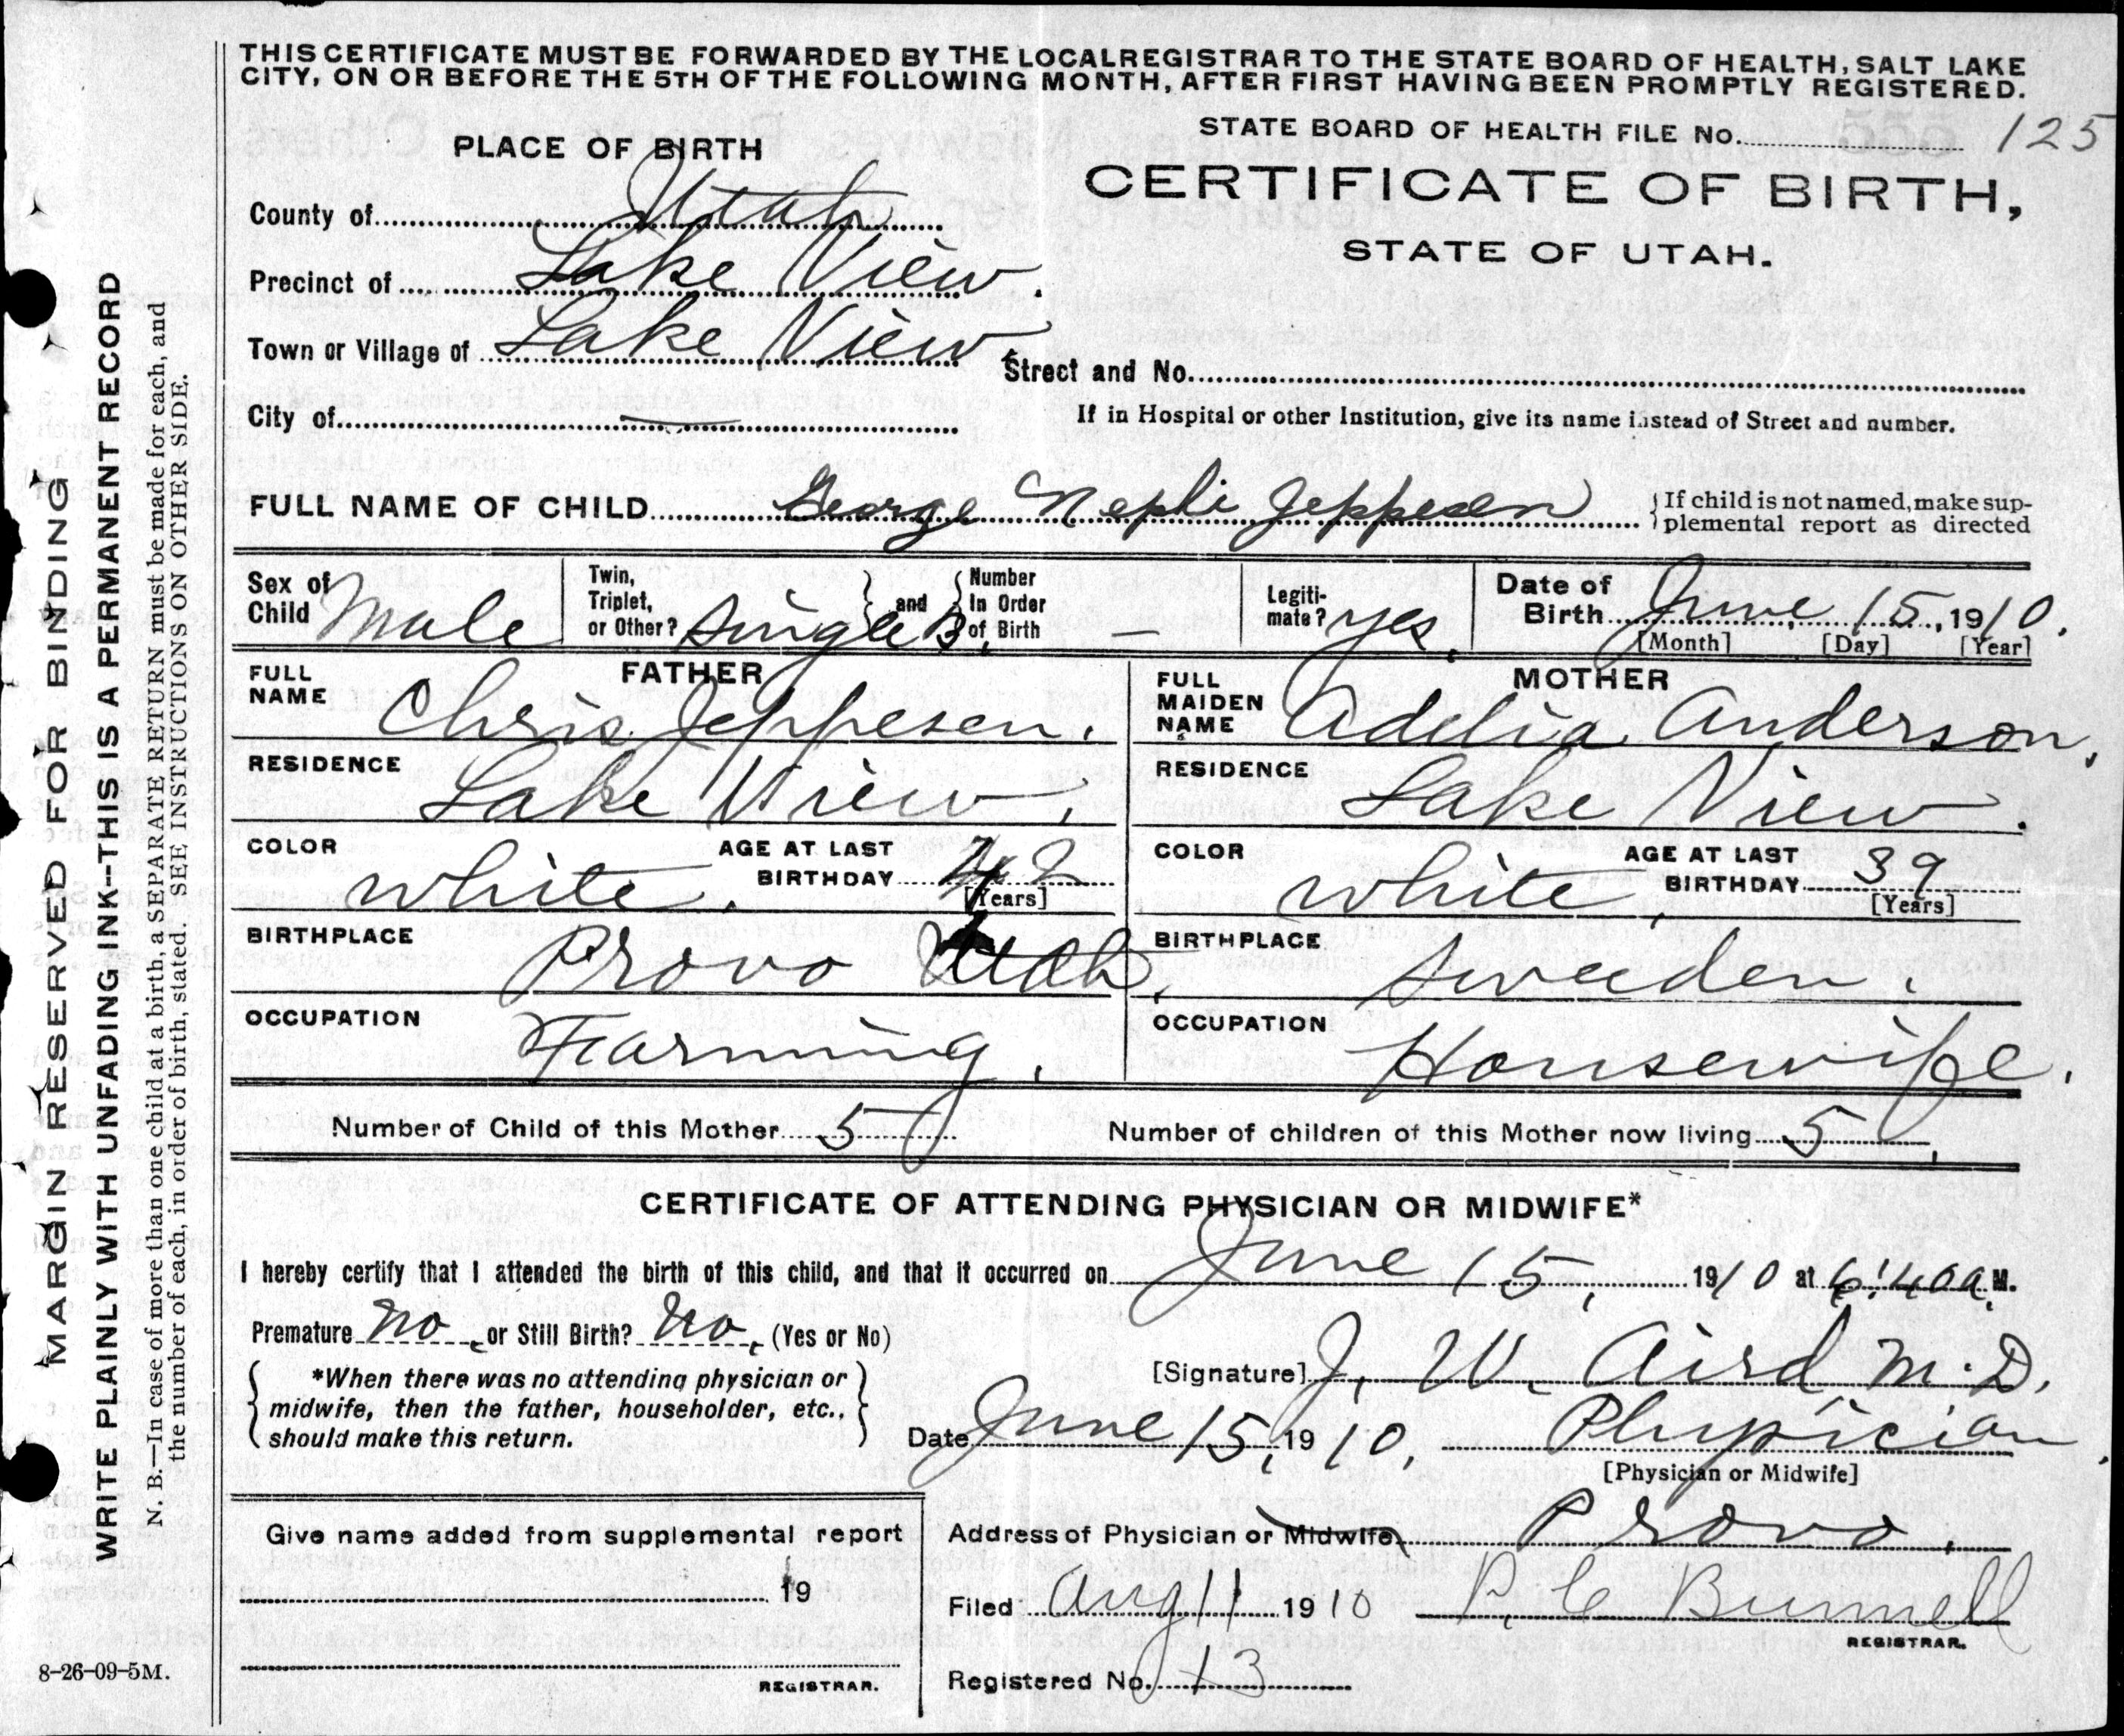 THIS CERTIFICATE MUST BE FORWARDED BY THE LOCAL REGISTRAR TO THE STATE BOARD OF HEALTH, SALT LAKE
CITY, ON OR BEFORE THE 5TH OF THE FOLLOWING MONTH, AFTER FIRST HAVING BEEN PROMPTLY REGISTERED.
STATE BOARD OF HEALTH FILE No. 125
PLACE OF BIRTH
CERTIFICATE OF BIRTH,
STATE OF UTAH.
County of Utah
Precinct of Lake View.
Town or Village of Lake View
Street and No.
City of —
If in Hospital or other Institution, give its name instead of Street and number.
FULL NAME OF CHILD George Nephi Jeppesen
{If child is not named, make sup-
plemental report as directed
Sex of Child Male
Twin, Triplet, or Other? Single B. } and { Number In Order of Birth —
Legiti-mate? yes.
Date of Birth June 15, 1910.
[Month] [Day] [Year]
FATHER
FULL NAME Chris Jeppesen.
RESIDENCE Lake View.
COLOR white. AGE AT LAST BIRTHDAY 42 [Years]
BIRTHPLACE Provo Utah.
OCCUPATION Farming.
MOTHER
FULL MAIDEN NAME Adelia Anderson.
RESIDENCE Lake View.
COLOR white. AGE AT LAST BIRTHDAY 39 [Years]
BIRTHPLACE Sweeden.
OCCUPATION Housewife.
Number of Child of this Mother 5 Number of children of this Mother now living 5
CERTIFICATE OF ATTENDING PHYSICIAN OR MIDWIFE*
I hereby certify that I attended the birth of this child, and that it occurred on June 15, 1910 at 6:40 a. M.
Premature no, or Still Birth? no, (Yes or No)
*When there was no attending physician or
midwife, then the father, householder, etc.,
should make this return.
[Signature] J. W. Aird M.D.
Date June 15, 1910. Physician.
[Physician or Midwife]
Give name added from supplemental report
19
REGISTRAR.
Address of Physician or Midwife Provo.
Filed Aug 11 1910 P. C. Bunnell
REGISTRAR.
Registered No. 13
8-26-09-5M.
MARGIN RESERVED FOR BINDING
WRITE PLAINLY WITH UNFADING INK--THIS IS A PERMANENT RECORD
N. B.—In case of more than one child at a birth, a SEPARATE RETURN must be made for each, and
the number of each, in order of birth, stated. SEE INSTRUCTIONS ON OTHER SIDE.